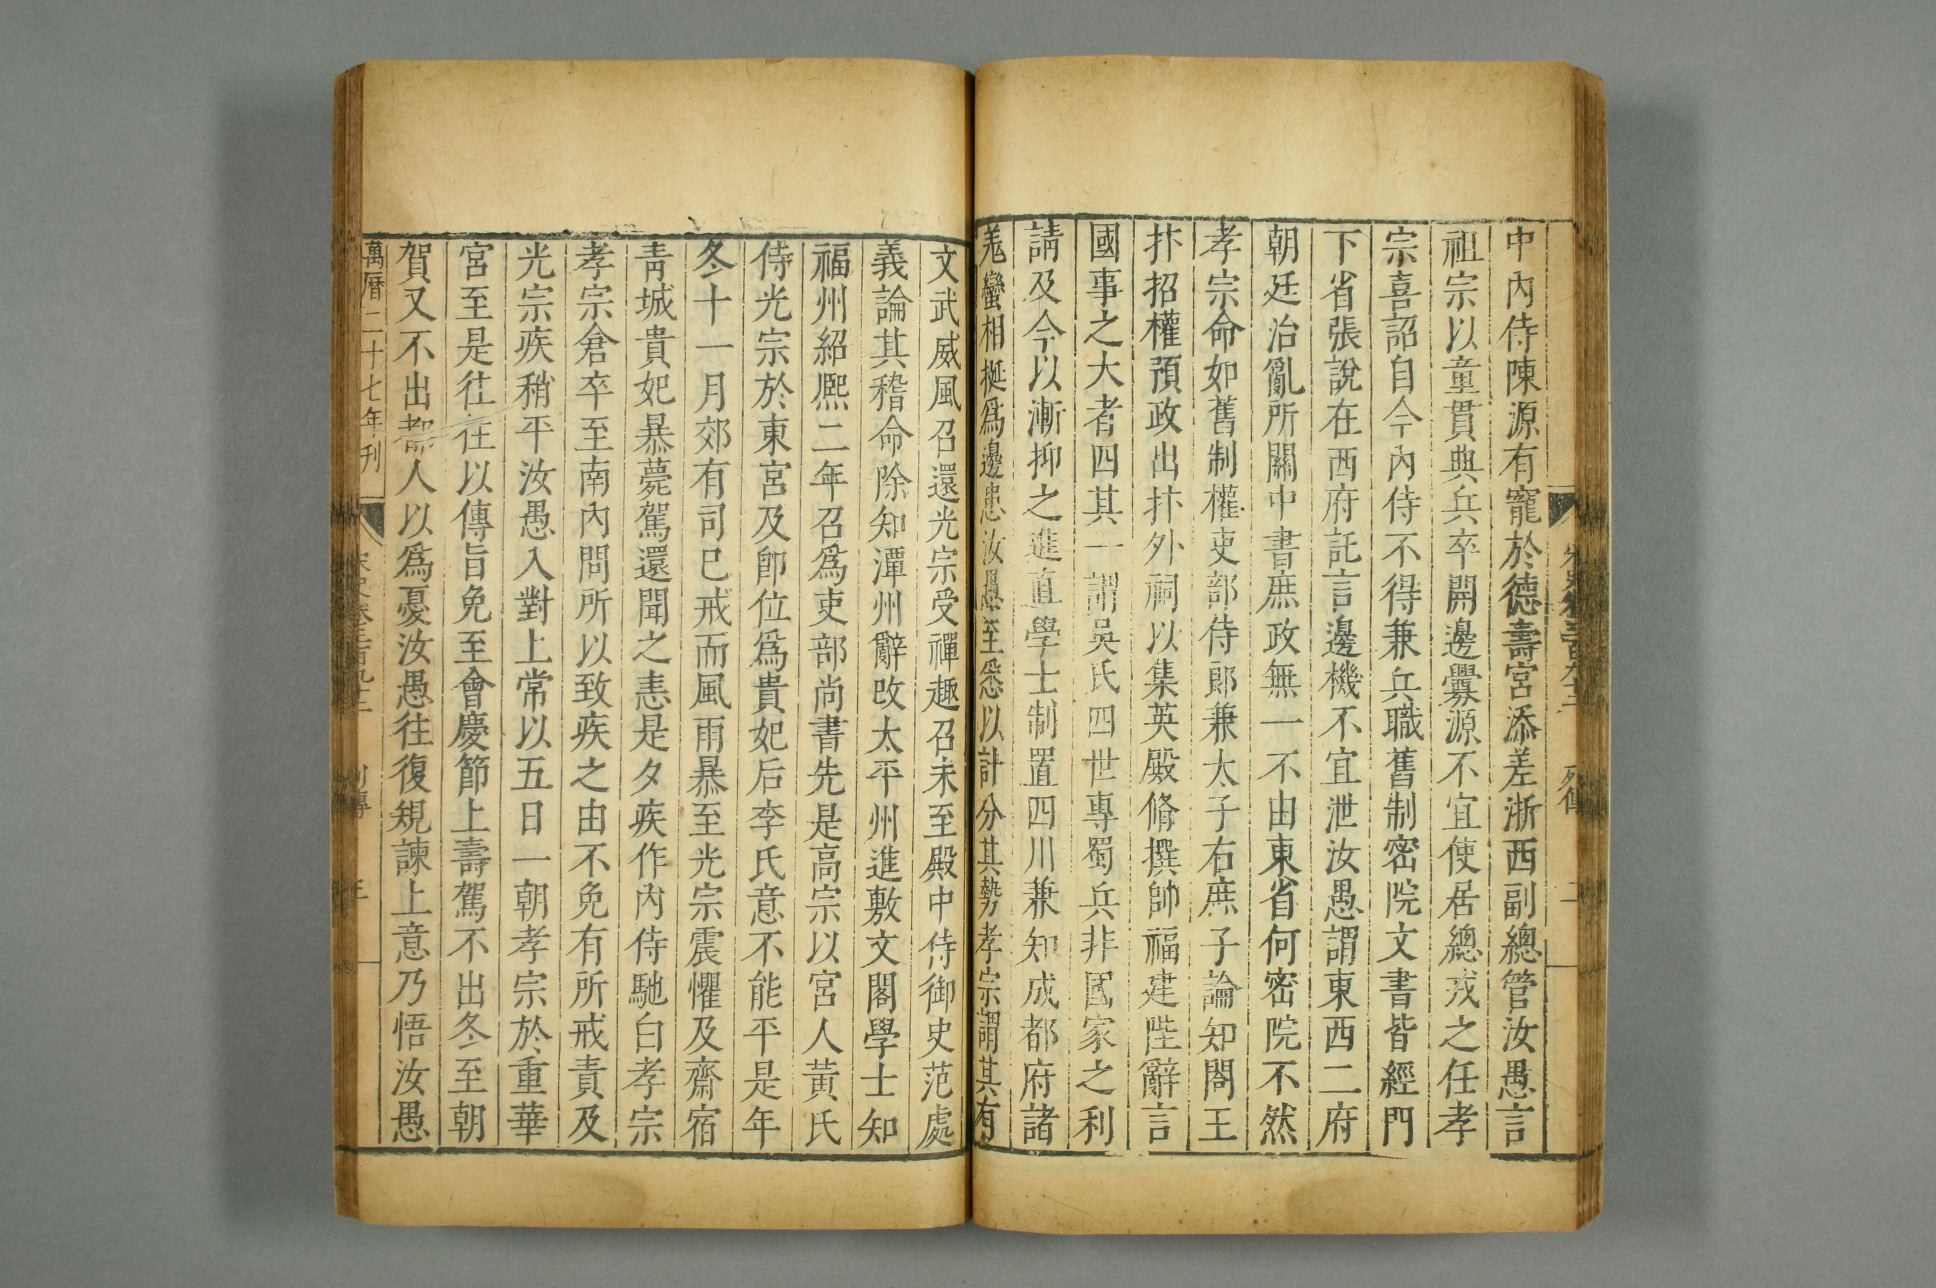 中內侍陳源有寵於德壽宮添差浙西副總管汝愚言
祖宗以童貫典兵卒開邊釁源不宜使居總戎之任孝
宗喜詔自今內侍不得兼兵職舊制密院文書皆經門
下省張說在西府託言邊機不宜泄汝愚謂東西二府
朝廷治亂所關中書庶政無一不由東省何密院不然
孝宗命如舊制權吏部侍郎兼太子右庶子論知閤王
抃招權預政出抃外祠以集英殿脩撰帥福建陛辭言
國事之大者四其一謂吳氏四世專蜀兵非國家之利
請及今以漸抑之進直學士制置四川兼知成都府諸
羗蠻相挻爲邊患汝愚至悉以計分其勢孝宗謂其有
文武威風召還光宗受禪趣召未至殿中侍御史范處
義論其稽命除知潭州辭改太平州進敷文閣學士知
福州紹熈二年召爲吏部尚書先是高宗以宮人黃氏
侍光宗於東宮及卽位爲貴妃后李氏意不能平是年
冬十一月郊有司已戒而風雨暴至光宗震懼及齋宿
靑城貴妃暴薨駕還聞之恚是夕疾作內侍馳白孝宗
孝宗倉卒至南內問所以致疾之由不免有所戒責及
光宗疾稍平汝愚入對上常以五日一朝孝宗於重華
宮至是往往以傳旨免至會慶節上壽駕不出冬至朝
賀又不出都人以爲憂汝愚往復規諫上意乃悟汝愚
萬曆二十七年刊
宋史卷三百九十二 列傳 三